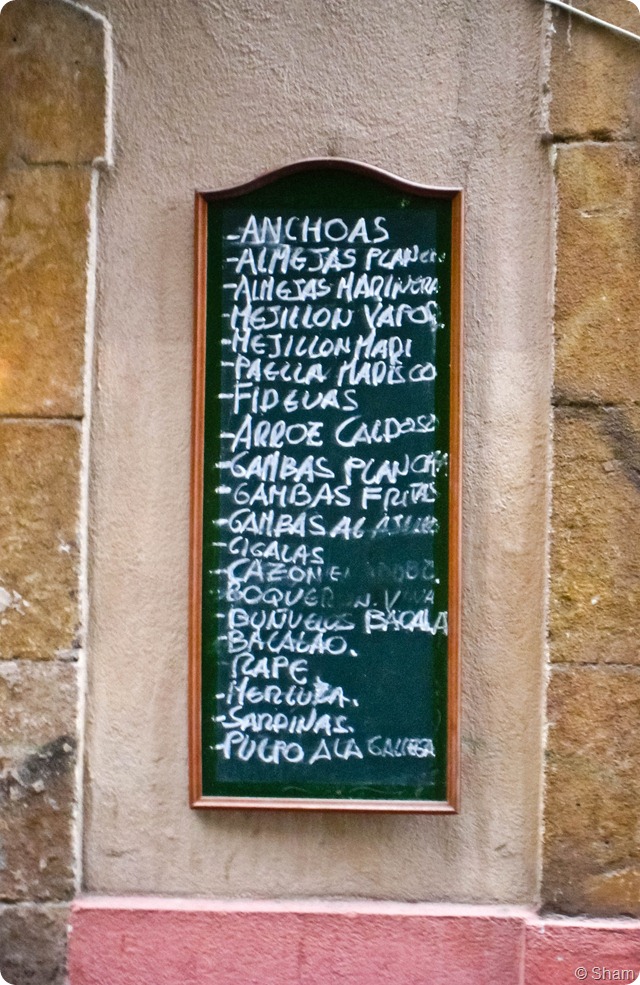 -ANCHOAS
-ALMEJAS PLANCH
-ALMEJAS MARINERA
-MEJILLON VAPOR.
-MEJILLON MARI
-PAELLA MARISCO
-FIDEUAS
-ARROZ CALDOSO
-GAMBAS PLANCHA
-GAMBAS FRITAS
-GAMBAS AL AJILLO
-CIGALAS
-CAZON EN ADOBO.
-BOQUERON. VINA
-BUÑUELOS BACALA
-BACALAO.
RAPE
-MERLUZA.
-SARDINAS.
-PULPO A LA GALLEGA
© Sham